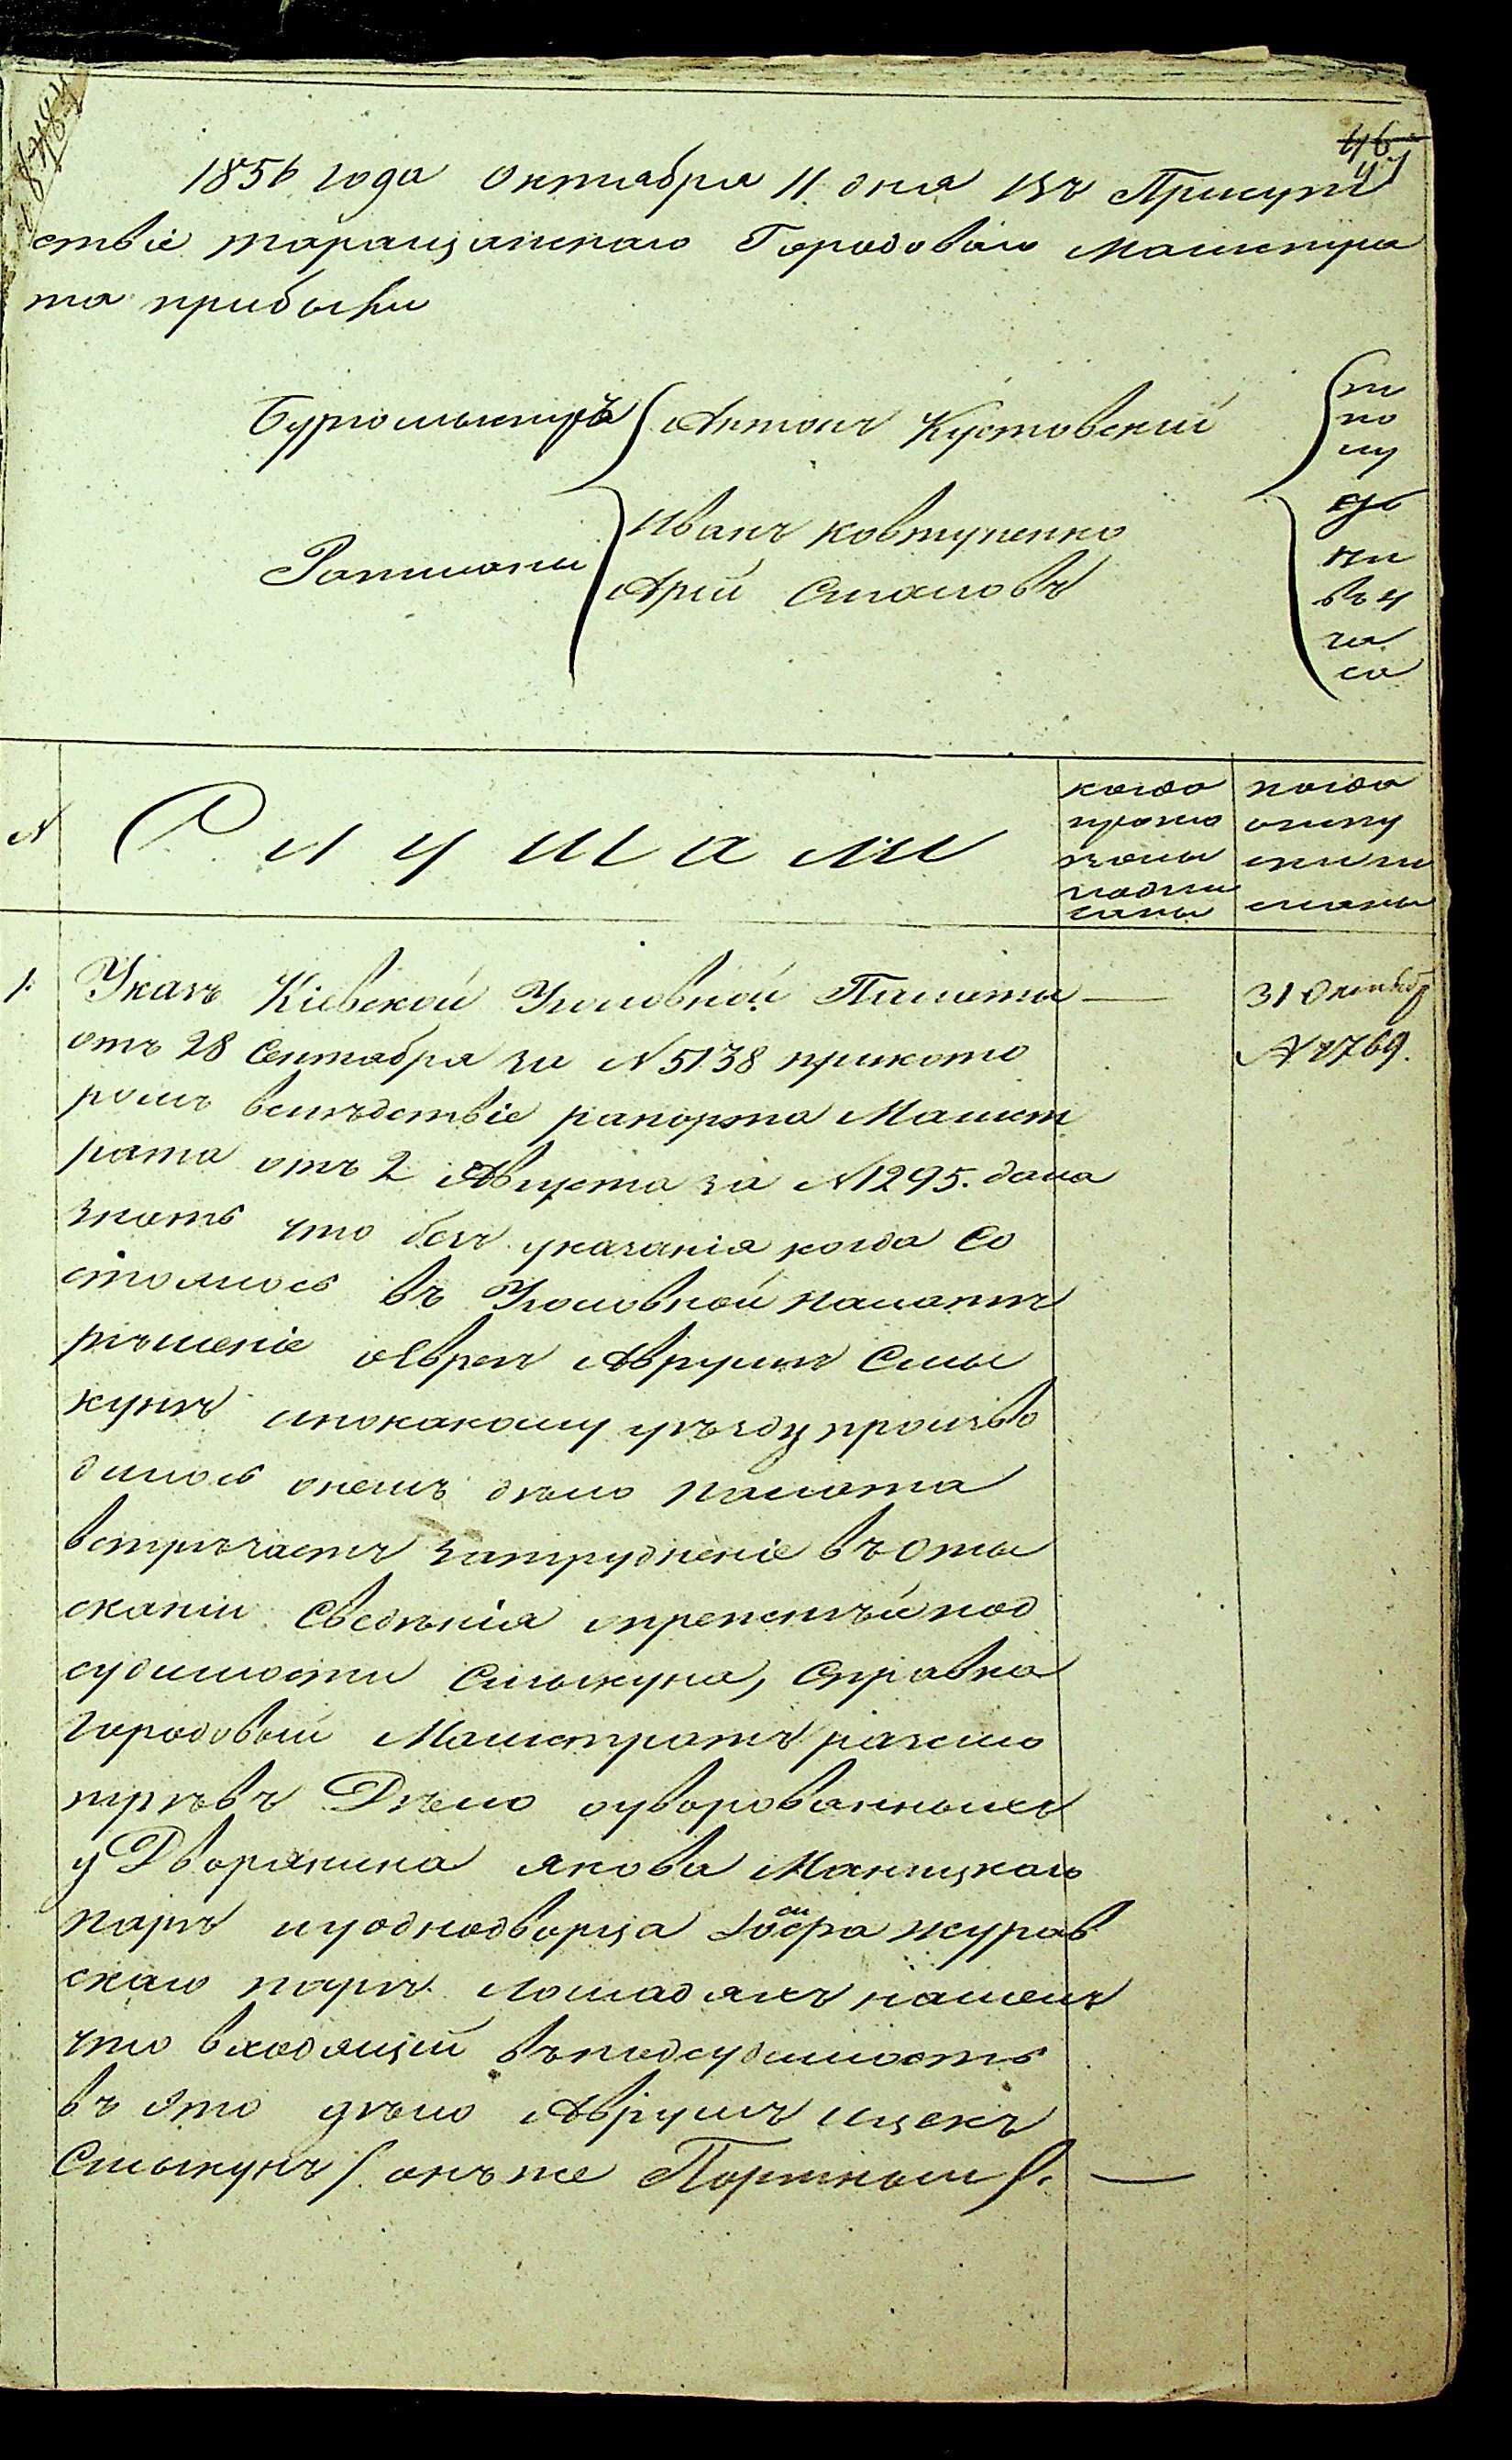 46
47
1856 года октября 11 дня въ Присут
ствіе таращанскаго Городоваго магистра
та прибыли
Бургомистръ Антонъ Кустовскій
Ратманы Иванъ Ковтуненко
Арій Смаловъ
по
лу
дни
въ 4
ча
са
N
Слушали
когда
прото
колы
подпи
саны
когда
отпу
сти ли
1.
Указъ Кіевской Уголовной Палаты
отъ 28 Сентября за N 5138 прикото
ромъ вслѣдствіе рапорта Магист
рата отъ 2 Августа за N 1295. дала
знать что безъ указанія когда Со
стоялось въ Уголовной палатѣ
рѣшеніе о Евреѣ Аврумѣ Смы
кунѣ ипокакому уѣзду произво
дилось онемъ дѣло палата
встрѣчаетъ затрудненіе въ оты
сканіи Сведѣнія опрежнѣй под
судимости Смыкуна, Справка
городовый Магистратъ разсмо
трѣвъ Дѣло оуворованныхъ
у Дворянина Якова Маницкаго
парѣ иуоднодворца Іосифа журав
скаго парѣ лошадяхъ нашелъ
что входящій въподсудимость
въ это дѣло Аврумъ Ицекъ
Смыкунъ (онъ же Портной).
31 Октябр
N 1769.